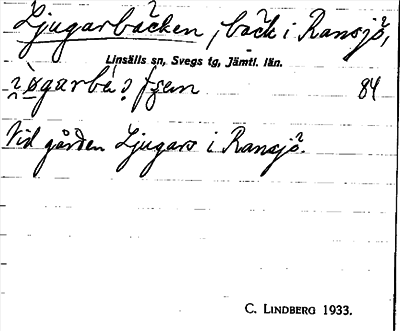 Ljugarbäcken, bäck i Ransjö,
Linsälls sn, Svegs tg, Jämtl. län.
84
Vid gården Ljugars i Ransjö.
C. LINDBERG 1933.